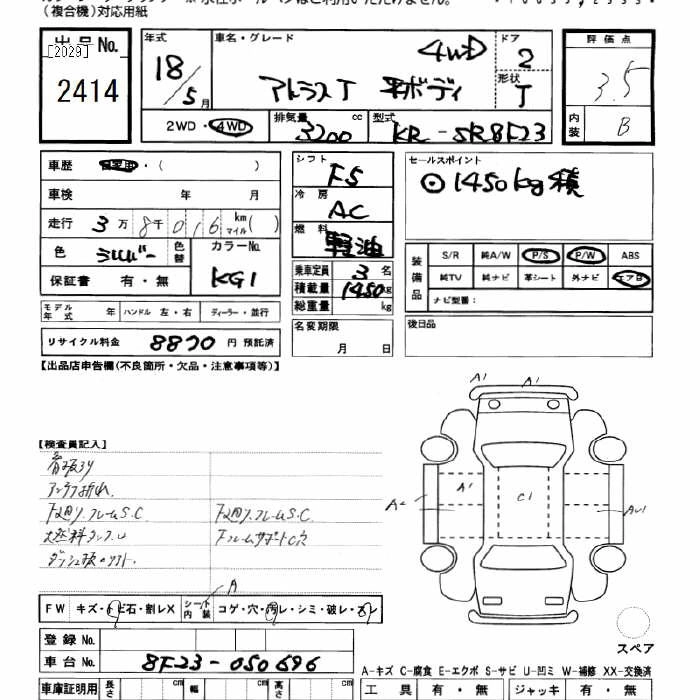 (複合機)対応用紙
出品No.
[2029]
2414
年式
18/5月
車名・グレード
アトラスT 平ボディ 4WD
ドア
2
形状
T
評価点
3.5
内装
B
2WD・4WD
排気量
3200 cc
型式
KR-SR8F23
車歴 自家用・( )
車検 年 月
走行 3万8千016 km マイル( )
色 シルバー 色替
カラーNo.
KG1
保証書 有・無
モデル年式 年 ハンドル 左・右 ディーラー・並行
リサイクル料金 8870 円 預託済
シフト
F5
冷房
AC
燃料
軽油
乗車定員 3 名
積載量 1450 kg
総重量 kg
名変期限
月 日
セールスポイント
⊙1450kg積
装備品
S/R 純A/W P/S P/W ABS
純TV 純ナビ 革シート 外ナビ エアB
ナビ型番:
後日品
【出品店申告欄(不良箇所・欠品・注意事項等)】
【検査員記入】
アンテナ折れ
下廻り、フレームS.C
下廻リ、フレームS.C
A1 A1
A2 A1 C1 AU1
A
FW キズ・トビ石・割レX シート内装 コゲ・穴・汚レ・シミ・破レ・スレ
登録No.
車台No. 8F23-050696
スペア
A-キズ C-腐食 E-エクボ S-サビ U-凹ミ W-補修 XX-交換済
車庫証明用 長さ cm 幅 cm 高さ cm
工具 有・無 ジャッキ 有・無